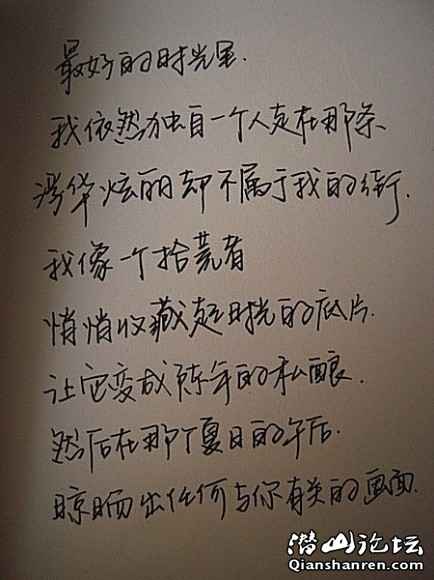 最好的时光里.
我依然独自一个人走在那条、
浮华炫丽却不属于我的街.
我像一个拾荒者
悄悄收藏起时光的底片.
让它变成陈年的私酿.
然后在那个夏日的午后.
晾晒出任何与你有关的画面.
潜山论坛
Qianshanren.com